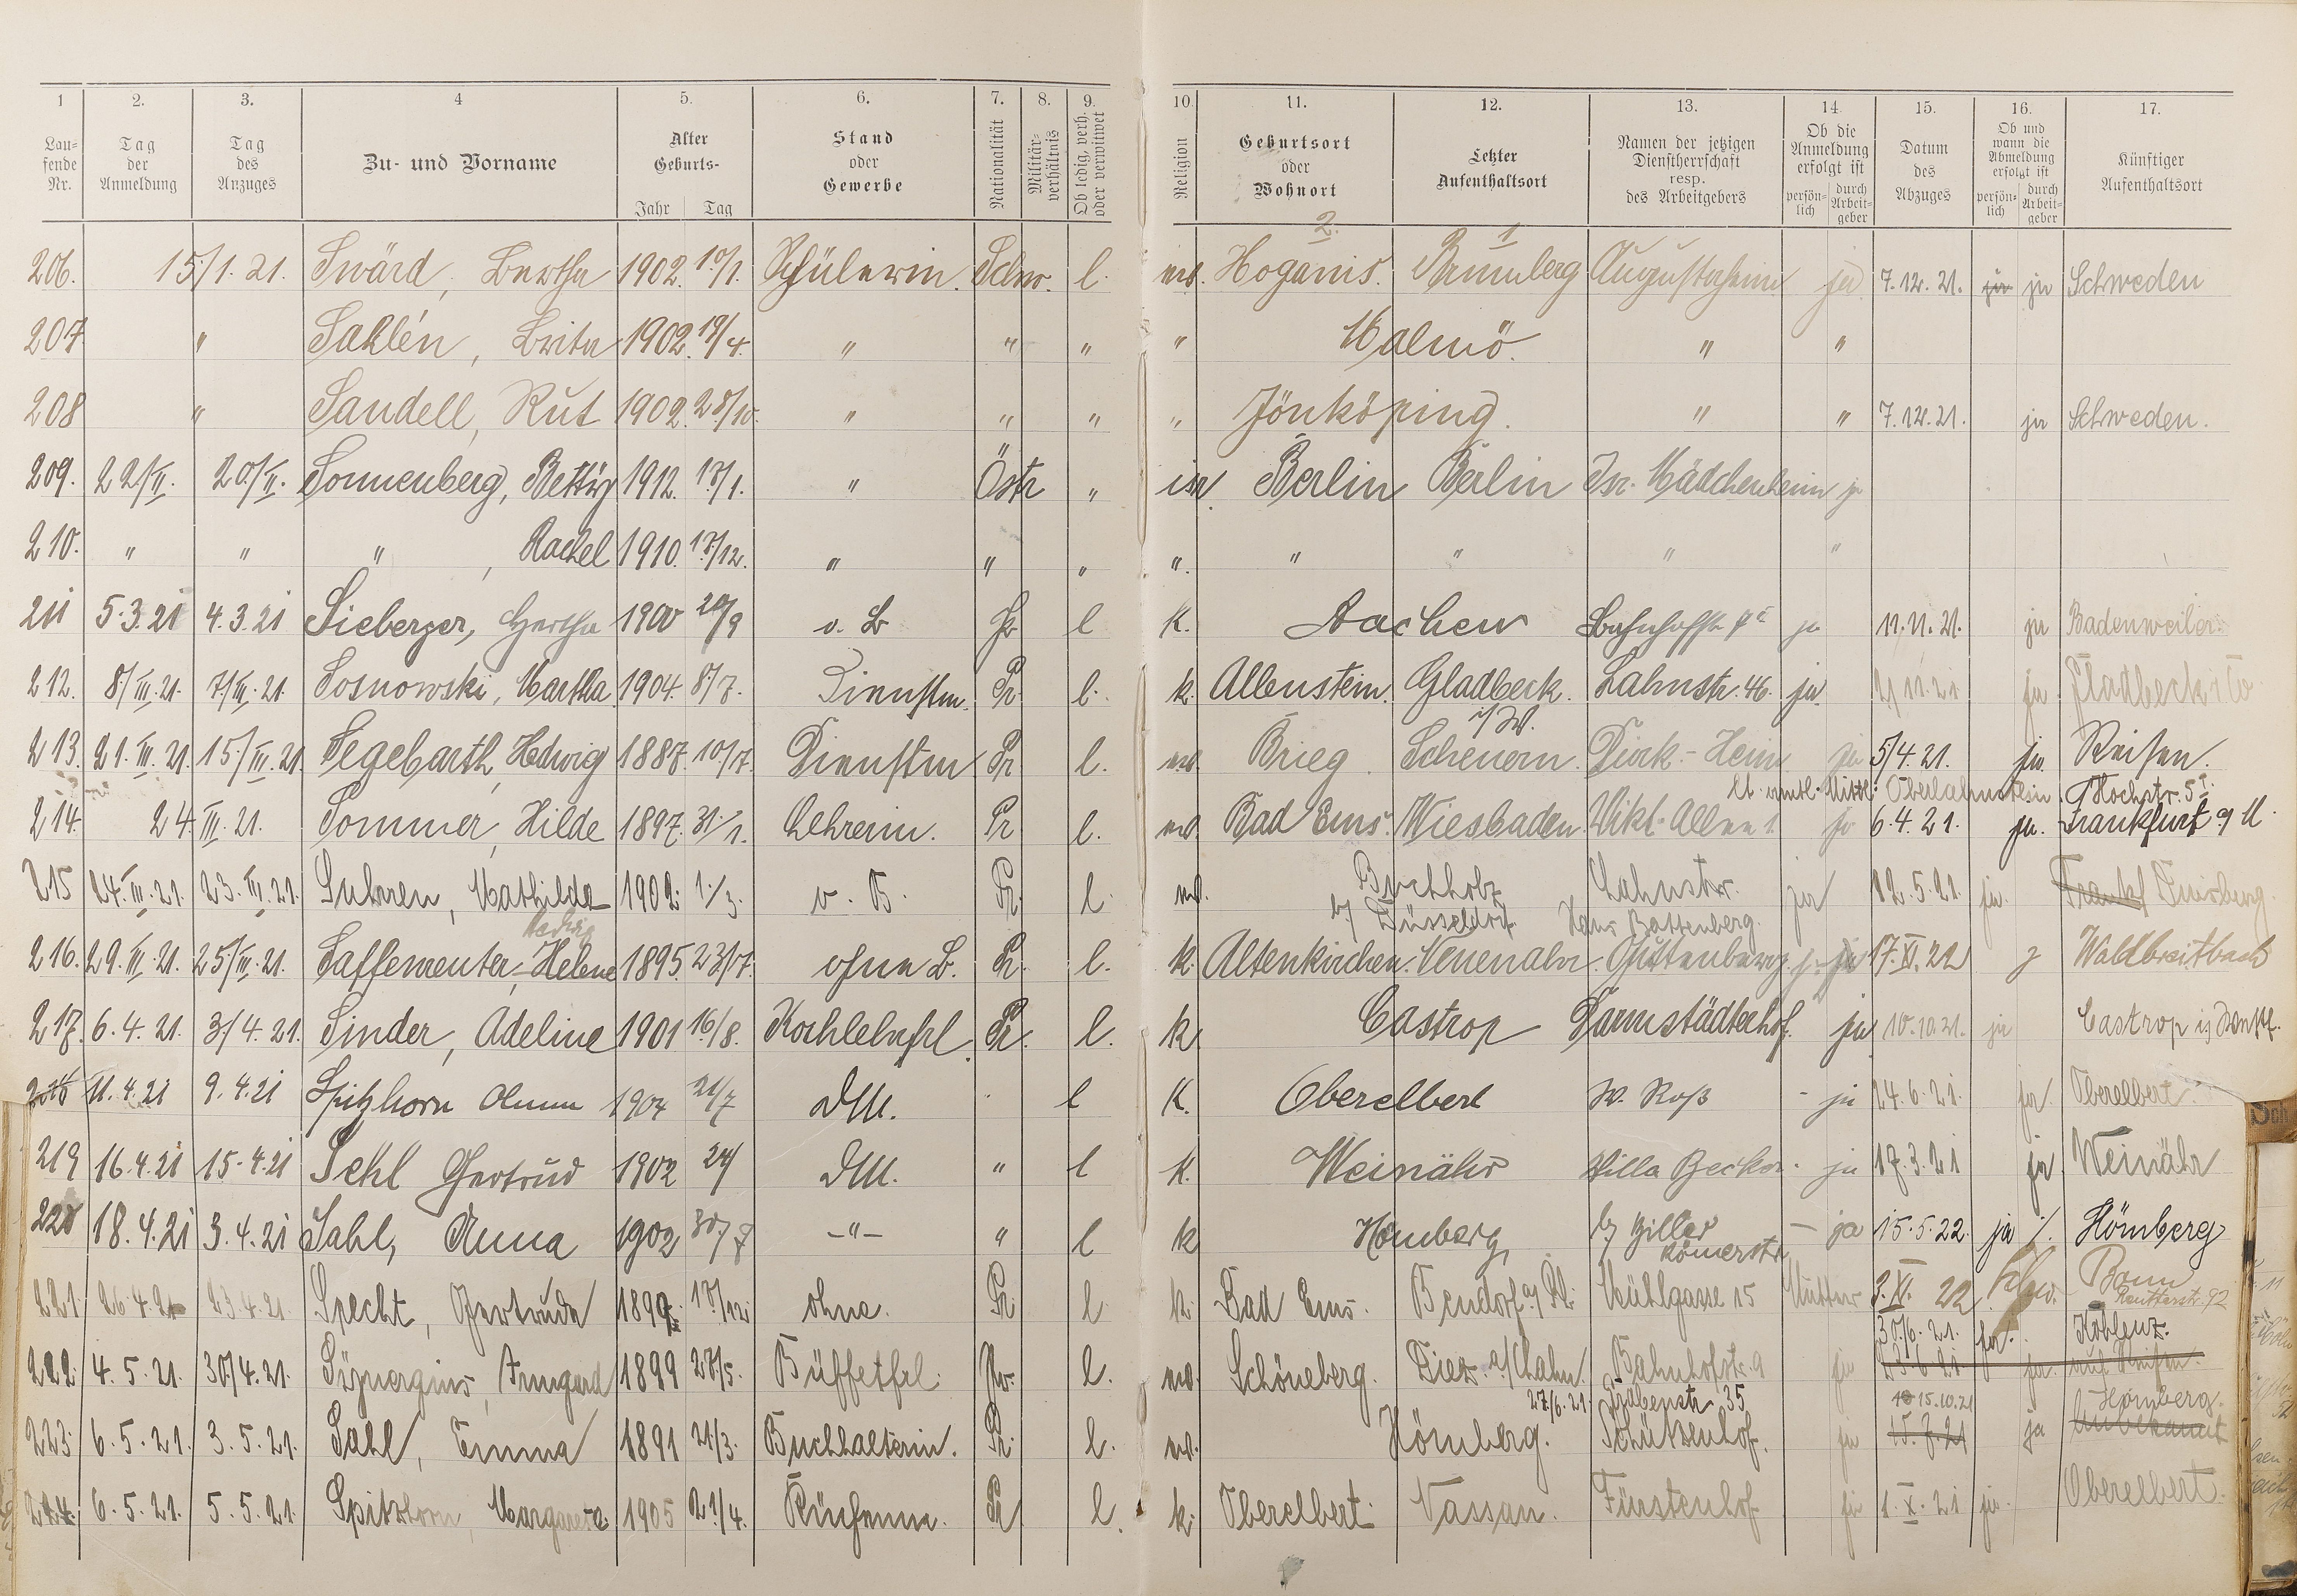 1 2. 3. 4 5. 6. 7. 8. 9. 10. 11. 12. 13. 14. 15. 16. 17.
Lau=fende Nr. Tag der Anmeldung Tag des Anzuges Zu- und Vorname Alter Geburts- Jahr Tag Stand oder Gewerbe Nationalität Militär-verhältnis Ob ledig, verh. oder verwitwet Religion Geburtsort oder Wohnort Letzter Aufenthaltsort Namen der jetzigen Dienstherrschaft resp. des Arbeitgebers Ob die Anmeldung erfolgt ist persön-lich durch Arbeit-geber Datum des Abzuges Ob und wann die Abmeldung erfolgt ist persön-lich durch Arbeit-geber Künftiger Aufenthaltsort
2. 1
206. 15/1. 21. Swärd, Bertha 1902. 10/1. Schülerin. Schw. l. Hoganis. Augustaheim ja 7.12.21. ja ja Schweden
207 " Sahlén, Brita 1902. 19/4. " " " " Malmö. " "
208 " Sandell, Rut 1902. 28/10. " " " " Jönköping. " " 7.12.21. ja Schweden.
209. 22/II. 20/II. Sonnenberg, Betty 1912. 17/1. " Östr " isr. Berlin Berlin Isr. Mädchenheim ja
210. " " " , Rachel 1910. 17/12. " " " " " " " "
211 5.3.21 4.3.21 Sieberger, Hertha 1900 20/9 o. B Pr l k. Aachen Bahnhofstr ja 11.11.21. ja Badenweiler
212. 8/III.21. 7/III.21. Sosnowski, Martha 1904. 8/7. Dienstm. Pr l. k. Allenstein. Gladbeck i/W. Lahnstr. 46. ja ja Gladbeck
213. 21.III.21. 15/III.21. Segebarth, Hedwig 1887. 10/7. Dienstm Pr l. Brieg. Scheuern. Diak.-Heim ja 5/4.21. ja Reisen.
Oberlahnstein, Hochstr. 5
214. 24.III.21. Sommer, Hilde 1897. 31/1. Lehrerin. Pr l. Bad Ems. Wiesbaden. Vikt. Allee 1. ja 6.4.21. ja. Frankfurt a/M.
215 24.III.21. 23.III.21. Suhren, Mathilde 1902. 1/3. o. B. Pr. l. Buchholz b/ Düsseldorf Lahnstr. Haus Battenberg. ja 12.5.21. ja. Frankf Duisberg.
Hedwig
216. 29.III.21. 25/III.21. Saffementer, Helene 1895. 23/7. ohne B. Pr. l. k. Altenkirchen. Neuenahr. ja 17.XI.22 Waldbreitbach
217. 6.4.21. 3/4.21. Sinder, Adeline 1901 16/8. Kochlehrfrl. Pr. l. k. Castrop Darmstädterhof. ja 10.10.21. ja Castrop
218 11.4.21 9.4.21 Spitzhorn Anna 1904 21/7 DM. l K. Oberelbert W. Roß - ja 24.6.21. ja. Oberelbert.
219 16.4.21 15.4.21 Sehl Gertrud 1902 24/ DM. " l k. Weinähr Villa Becker. - ja 17.3.21 ja. Weinähr
220 18.4.21 3.4.21 Sahl, Anna 1902 30/7 -"- " l k Hömberg b/ Ziller Römerstr. - ja 15.5.22. ja /. Hömberg
221. 26.4.21 23.4.21. Specht, Gertrude 1899. 17/12. ohne. Pr. l. k. Bad Ems. Bendorf a/ Rh. Mühlgasse 15 Mutter 3.XI. 22 Bonn Reutterstr. 92
30/6.21. ja. Koblenz.
222. 4.5.21. 30/4.21. Irmgard 1899 27/5. Büffetfrl. l. Schöneberg. Diez a/Lahn. Bahnhofstr. 9 ja 23.6.21. ja.
27/6.21. Grabenstr. 35 15.10.21 Hömberg.
223. 6.5.21. 3.5.21. Sahl, Emma 1891 21/3. Buchhalterin. Pr. l. Hömberg. Schützenhof. ja 15.7.21 ja Unbekannt
224. 6.5.21. 5.5.21. Spitzhorn, Margarete. 1905 21/4. Pr l. k. Oberelbert. Nassau. Fürstenhof ja 1.X.21 ja. Oberelbert.
Sch